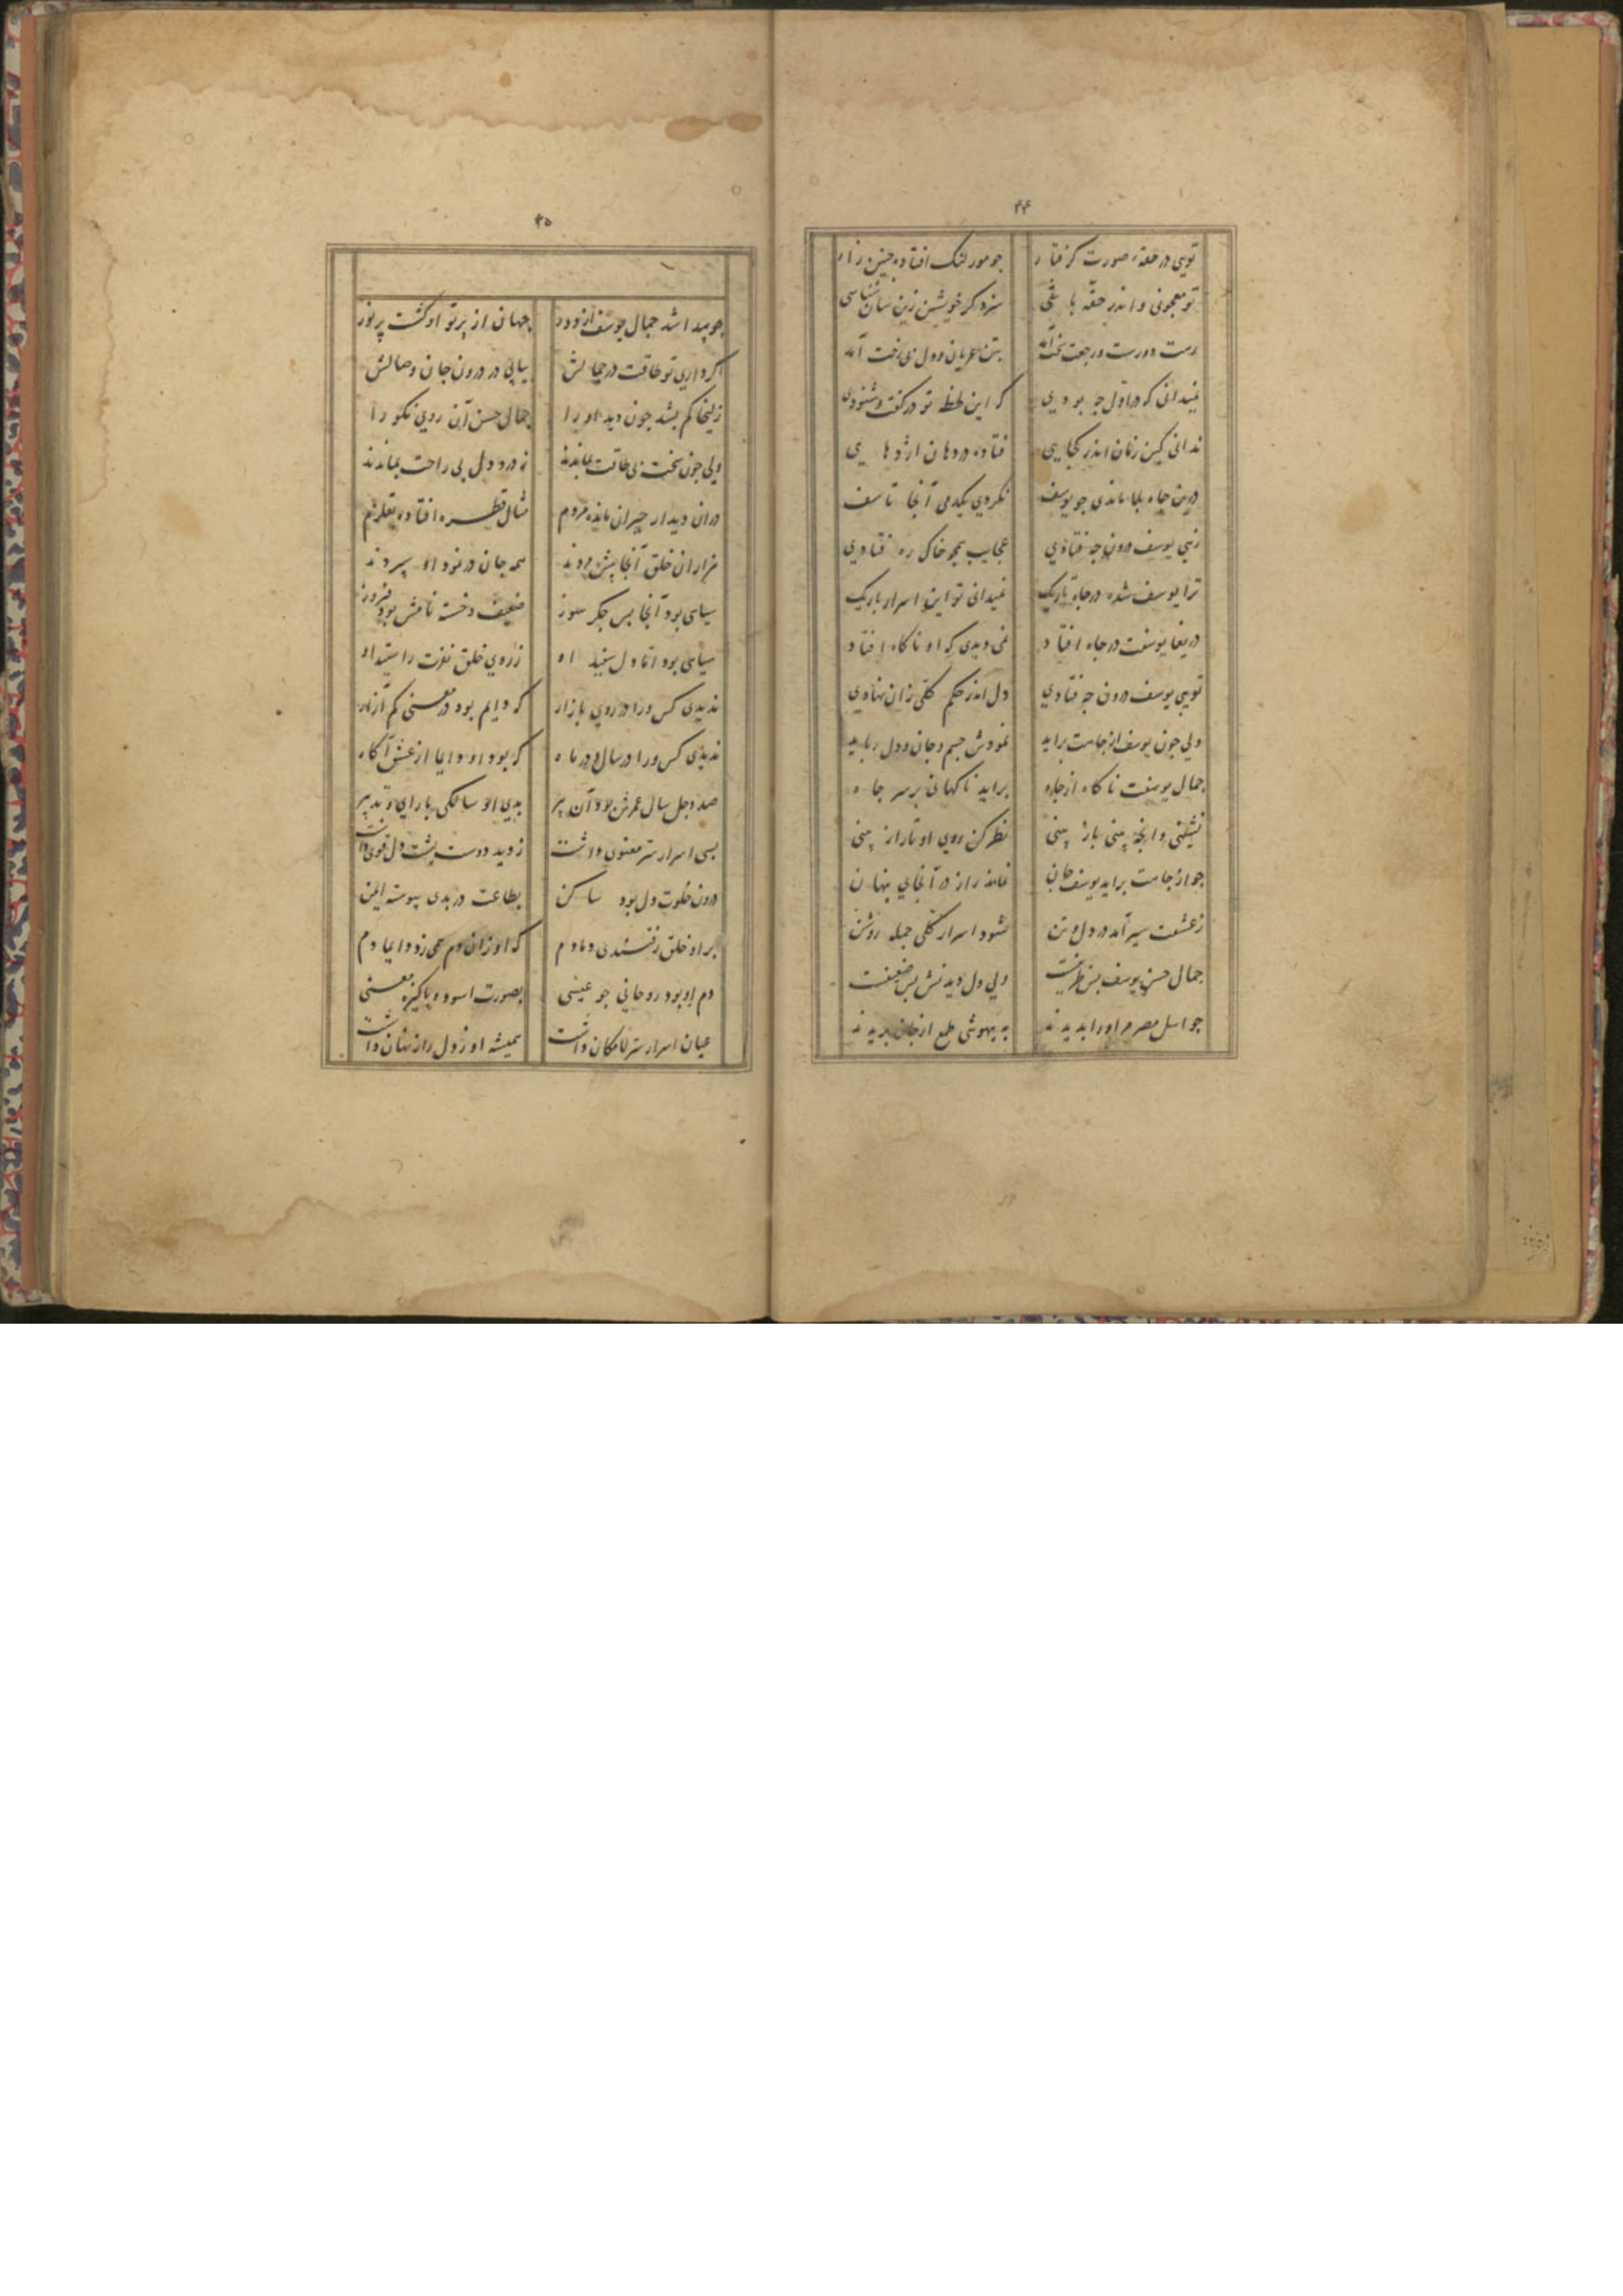 ۴۴
تویی در حقهٔ صورت گرفتار جو مور لنک افتاده جنین زار
تو معجونی و اندر حقه با سزد کر خویشتن زین سان شناسی
آمد بتن عریان و دل بی رخت آمد
نمیدانی که در اول جه بودی که این لحظه تو در کفت و شنودی
ندانی کین زمان اندر کجایی فتاده در دهان اژدهایی
درین جاه بلا ماندی جو یوسف نکردی یکدمی آنجا تاسف
زهی یوسف درون جه فتادی عجایب همجو خاک ره فتادی
ترا یوسف شده در جاه تاریک نمیدانی تو این اسرار باریک
دریغا یوسفت در جاه افتاد نمی دیدی که او ناکاه افتاد
تویی یوسف درون جه فتادی دل اندر حکم کلی زان نهادی
ولی جون یوسف از جاهت براید نمودش جسم و جان و دل رباید
جمال یوسفت ناکاه از جاه براید ناکهانی بر سر جاه
نشینی وانجه بینی باز بینی نظر کن روی او تا راز بینی
جو از جاهت براید یوسف جان نماند راز در آنجای پنهان
ز عشقت سیر آمد در دل و تن شود اسرار کلی جمله روشن
جمال حسن یوسف بس ظریفست ولی دل دیدنش بس ضعیفست
جو اهل مصر مر او را بدیدند به بیهوشی طمع از جان بریدند
۴۵
جو پیدا شد جمال یوسف از دور جهان از پرتو او کشت پر نور
کر داری تو طاقت در جمالش بیابی در درون جان وصالش
زلیخا کم بشد جون دید او را جمال حسن آن روی نکو را
ولی جون سخت بی طاقت بماندند ز درد دل بی راحت بماندند
در آن دیدار حیران مانده مردم مثال قطره افتاده بقلزم
هزاران خلق آنجا پیش مردند همه جان در نمود او سپردند
سیاهی بود آنجا بس جکر سوز ضعیف و خسته نامش بود فیروز
سیاهی بود اما دل سفید او ز روی خلق نفرت را ستید او
ندیدی کس ورا در روی بازار که دایم بود در معنی کم آزار
ندیدی کس ورا در سال و در ماه که بود او دایما از عشق آکاه
صد و جل سال عمرش بود آن پیر بدی او سالکی با رای و تدبیر
بسی اسرار سر معنوی داشت ز دید دوست پشت دل قوی داشت
درون خلوت دل بود ساکن بطاعت در بدی پیوسته ایمن
بر او خلق رفتندی دمادم که او زان دم همی زد دایما دم
دم او بود روحانی جو عیسی بصورت اسود و پاکیزه معنی
عیان اسرار سر لامکان داشت همیشه او ز دل راز نهان داشت